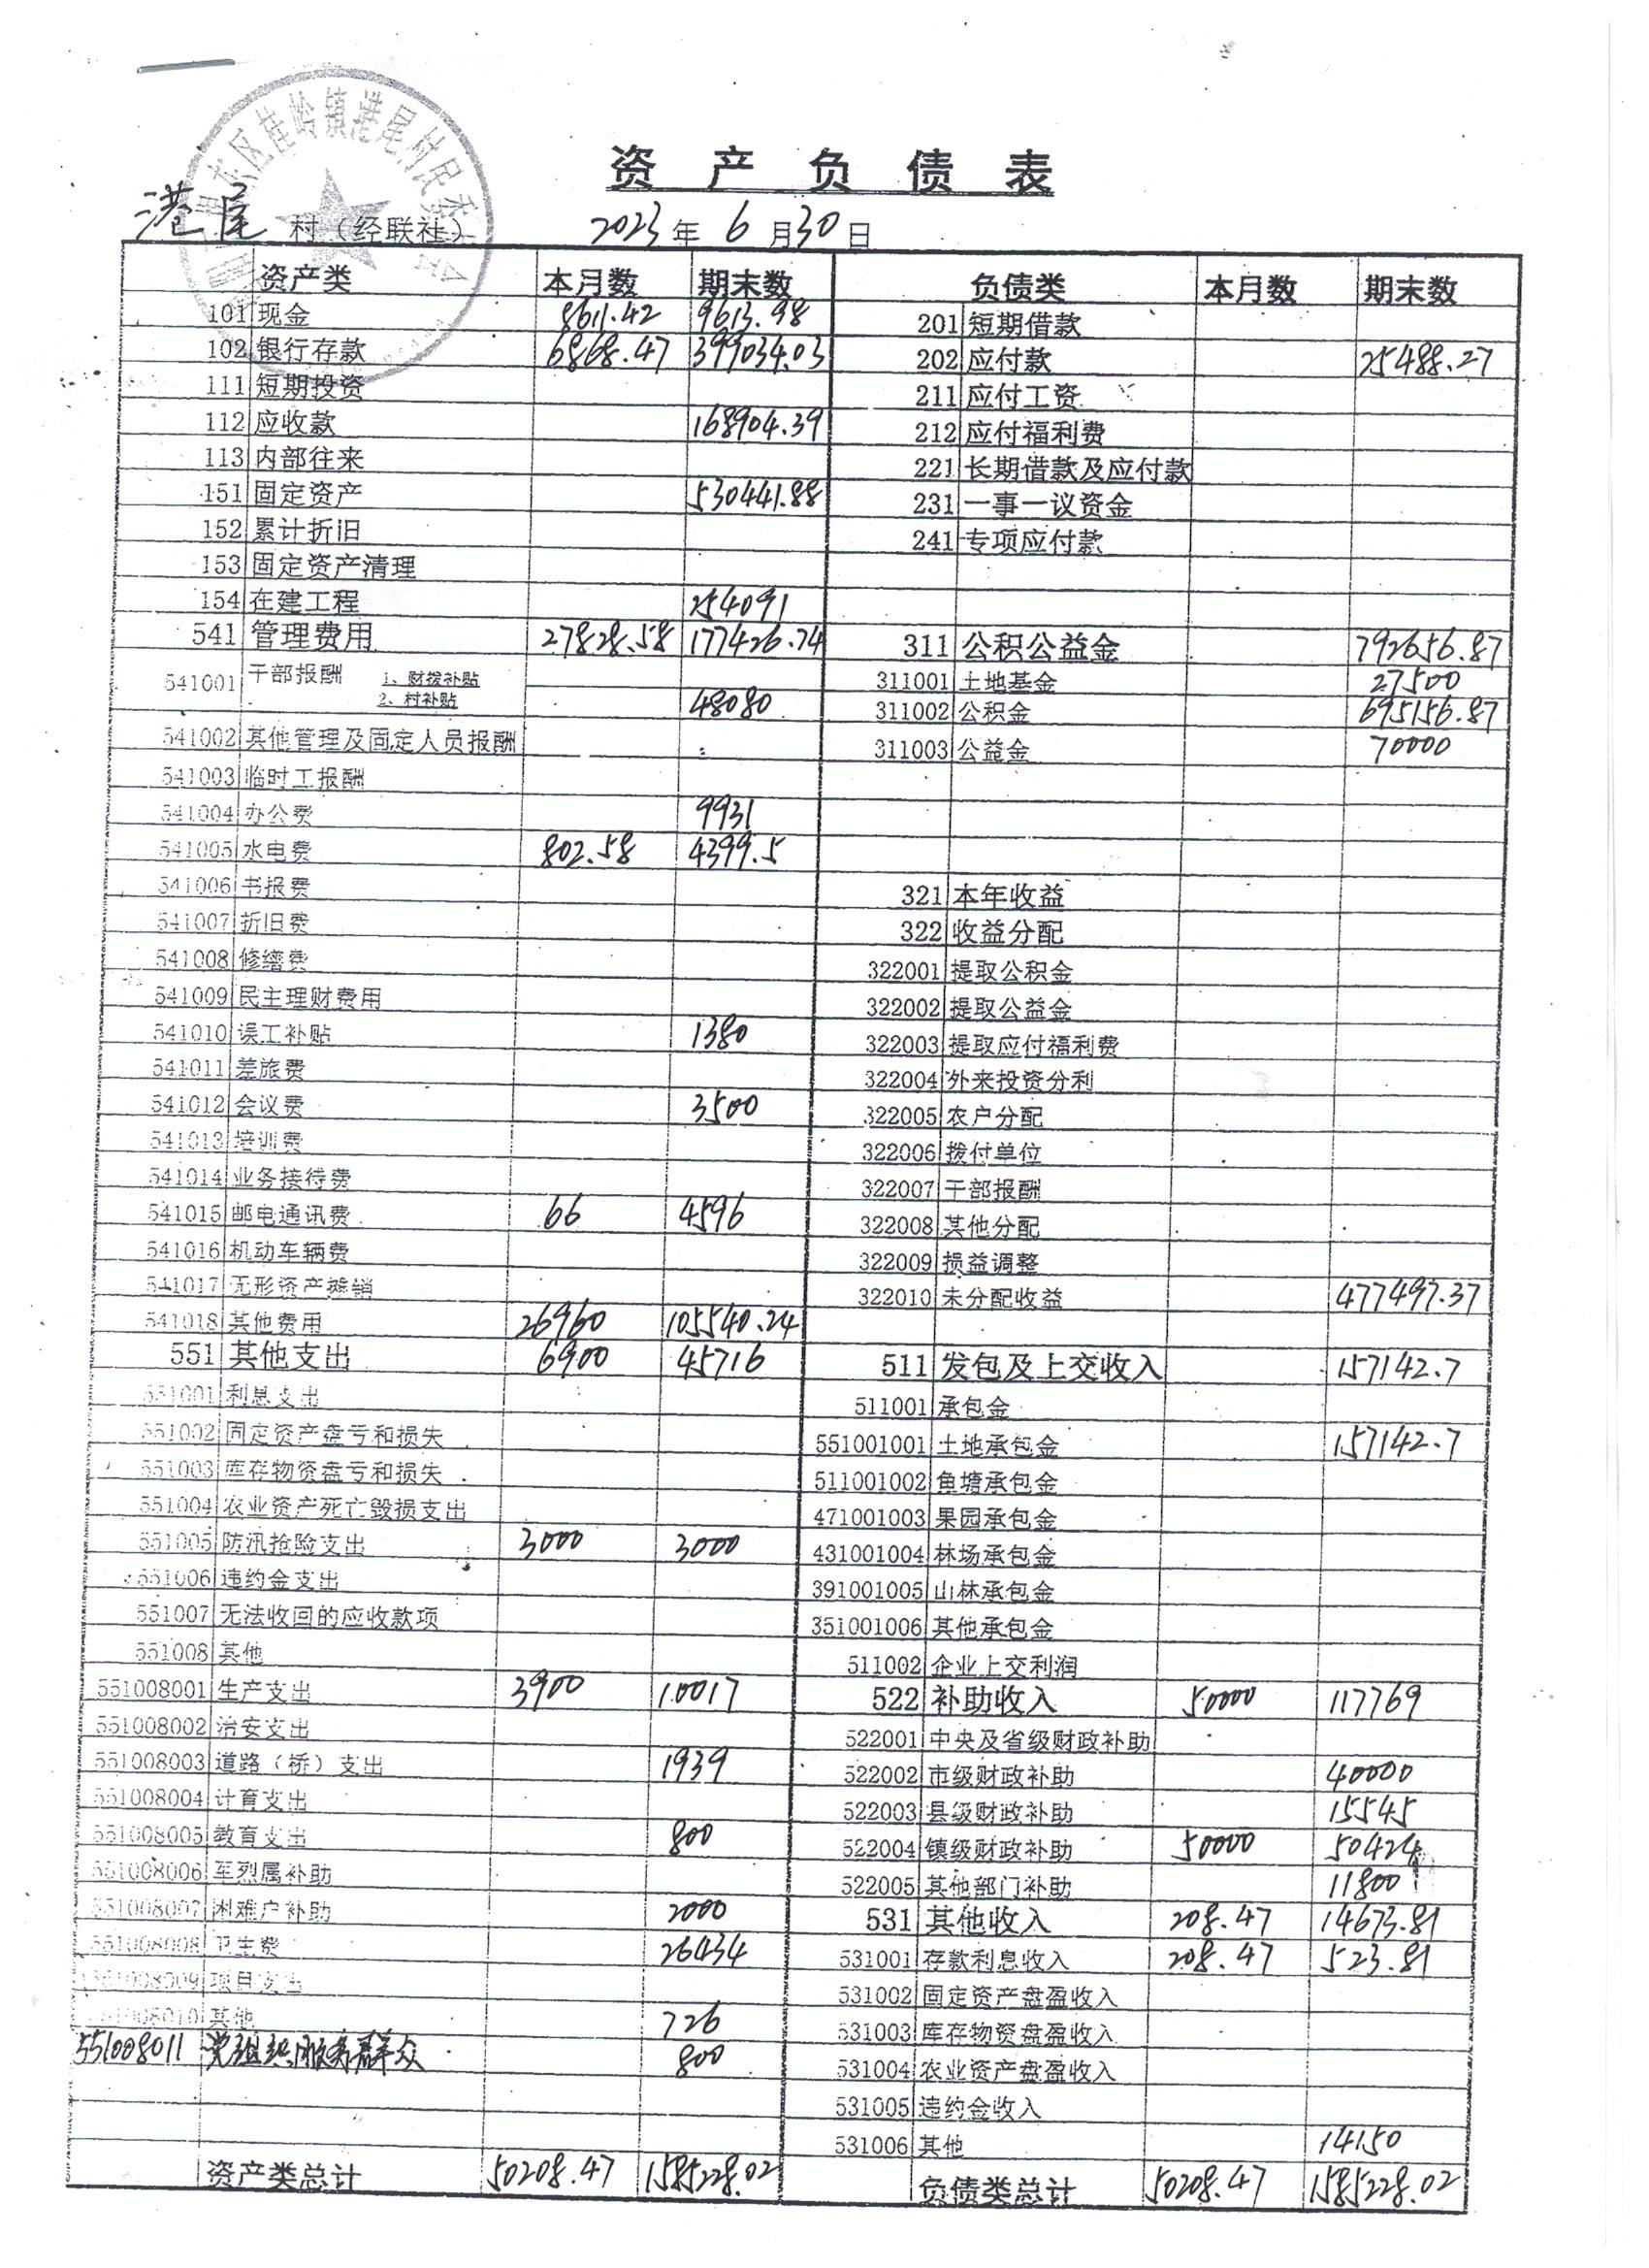 资产负债表
港尾 村（经联社） 2023年6月30日
资产类 本月数 期末数 负债类 本月数 期末数
101 现金 8611.42 9613.98 201 短期借款
102 银行存款 6868.47 399034.03 202 应付款 25488.27
111 短期投资 211 应付工资
112 应收款 168904.39 212 应付福利费
113 内部往来 221 长期借款及应付款
151 固定资产 530441.88 231 一事一议资金
152 累计折旧 241 专项应付款
153 固定资产清理
154 在建工程 254091
541 管理费用 27828.58 177426.74 311 公积公益金 792656.87
541001 干部报酬 1、财拨补贴 311001 土地基金 27500
2、村补贴 48080 311002 公积金 695156.87
541002 其他管理及固定人员报酬 311003 公益金 70000
541003 临时工报酬
541004 办公费 9931
541005 水电费 802.58 4399.5
541006 书报费 321 本年收益
541007 折旧费 322 收益分配
541008 修缮费 322001 提取公积金
541009 民主理财费用 322002 提取公益金
541010 误工补贴 1380 322003 提取应付福利费
541011 差旅费 322004 外来投资分利
541012 会议费 3500 322005 农户分配
541013 培训费 322006 拨付单位
541014 业务接待费 322007 干部报酬
541015 邮电通讯费 66 4596 322008 其他分配
541016 机动车辆费 322009 损益调整
541017 无形资产摊销 322010 未分配收益 477497.37
541018 其他费用 26960 105540.24
551 其他支出 6900 45716 511 发包及上交收入 157142.7
551001 利息支出 511001 承包金
551002 固定资产盘亏和损失 551001001 土地承包金 157142.7
551003 库存物资盘亏和损失 511001002 鱼塘承包金
551004 农业资产死亡毁损支出 471001003 果园承包金
551005 防汛抢险支出 3000 3000 431001004 林场承包金
551006 违约金支出 391001005 山林承包金
551007 无法收回的应收款项 351001006 其他承包金
551008 其他 511002 企业上交利润
551008001 生产支出 3900 10017 522 补助收入 50000 117769
551008002 治安支出 522001 中央及省级财政补助
551008003 道路（桥）支出 1939 522002 市级财政补助 40000
551008004 计育支出 522003 县级财政补助 15545
551008005 教育支出 800 522004 镇级财政补助 50000 50424
551008006 军烈属补助 522005 其他部门补助 11800
551008007 困难户补助 2000 531 其他收入 208.47 14673.81
551008008 卫生费 26434 531001 存款利息收入 208.47 523.81
551008009 项目支出 531002 固定资产盘盈收入
551008010 其他 726 531003 库存物资盘盈收入
551008011 党组织服务群众 800 531004 农业资产盘盈收入
531005 违约金收入
531006 其他 14150
资产类总计 50208.47 1585228.02 负债类总计 50208.47 1585228.02